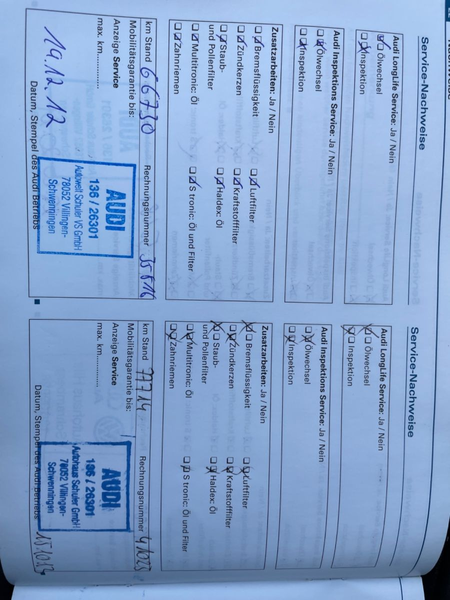 Service-Nachweise
Audi LongLife Service: Ja / Nein
Ölwechsel
Inspektion
Audi Inspektions Service: Ja / Nein
Ölwechsel
Inspektion
Zusatzarbeiten: Ja / Nein
Bremsflüssigkeit
Luftfilter
Zündkerzen
Kraftstofffilter
Staub-
und Pollenfilter
Haldex: Öl
Multitronic: Öl
S tronic: Öl und Filter
Zahnriemen
km Stand 66730 Rechnungsnummer
Mobilitätsgarantie bis:
Anzeige Service
max. km
19.12.12
AUDI
136 / 26301
Autowelt Schuler VS GmbH
78052 Villingen-
Schwenningen
Datum, Stempel des Audi Betriebs
Service-Nachweise
Audi LongLife Service: Ja / Nein
Ölwechsel
Inspektion
Audi Inspektions Service: Ja / Nein
Ölwechsel
Inspektion
Zusatzarbeiten: Ja / Nein
Bremsflüssigkeit
Luftfilter
Zündkerzen
Kraftstofffilter
Staub-
und Pollenfilter
Haldex: Öl
Multitronic: Öl
S tronic: Öl und Filter
Zahnriemen
km Stand 77714 Rechnungsnummer
Mobilitätsgarantie bis:
Anzeige Service
max. km
AUDI
136 / 26301
Autohaus Schuler GmbH
78052 Villingen-
Schwenningen
Datum, Stempel des Audi Betriebs